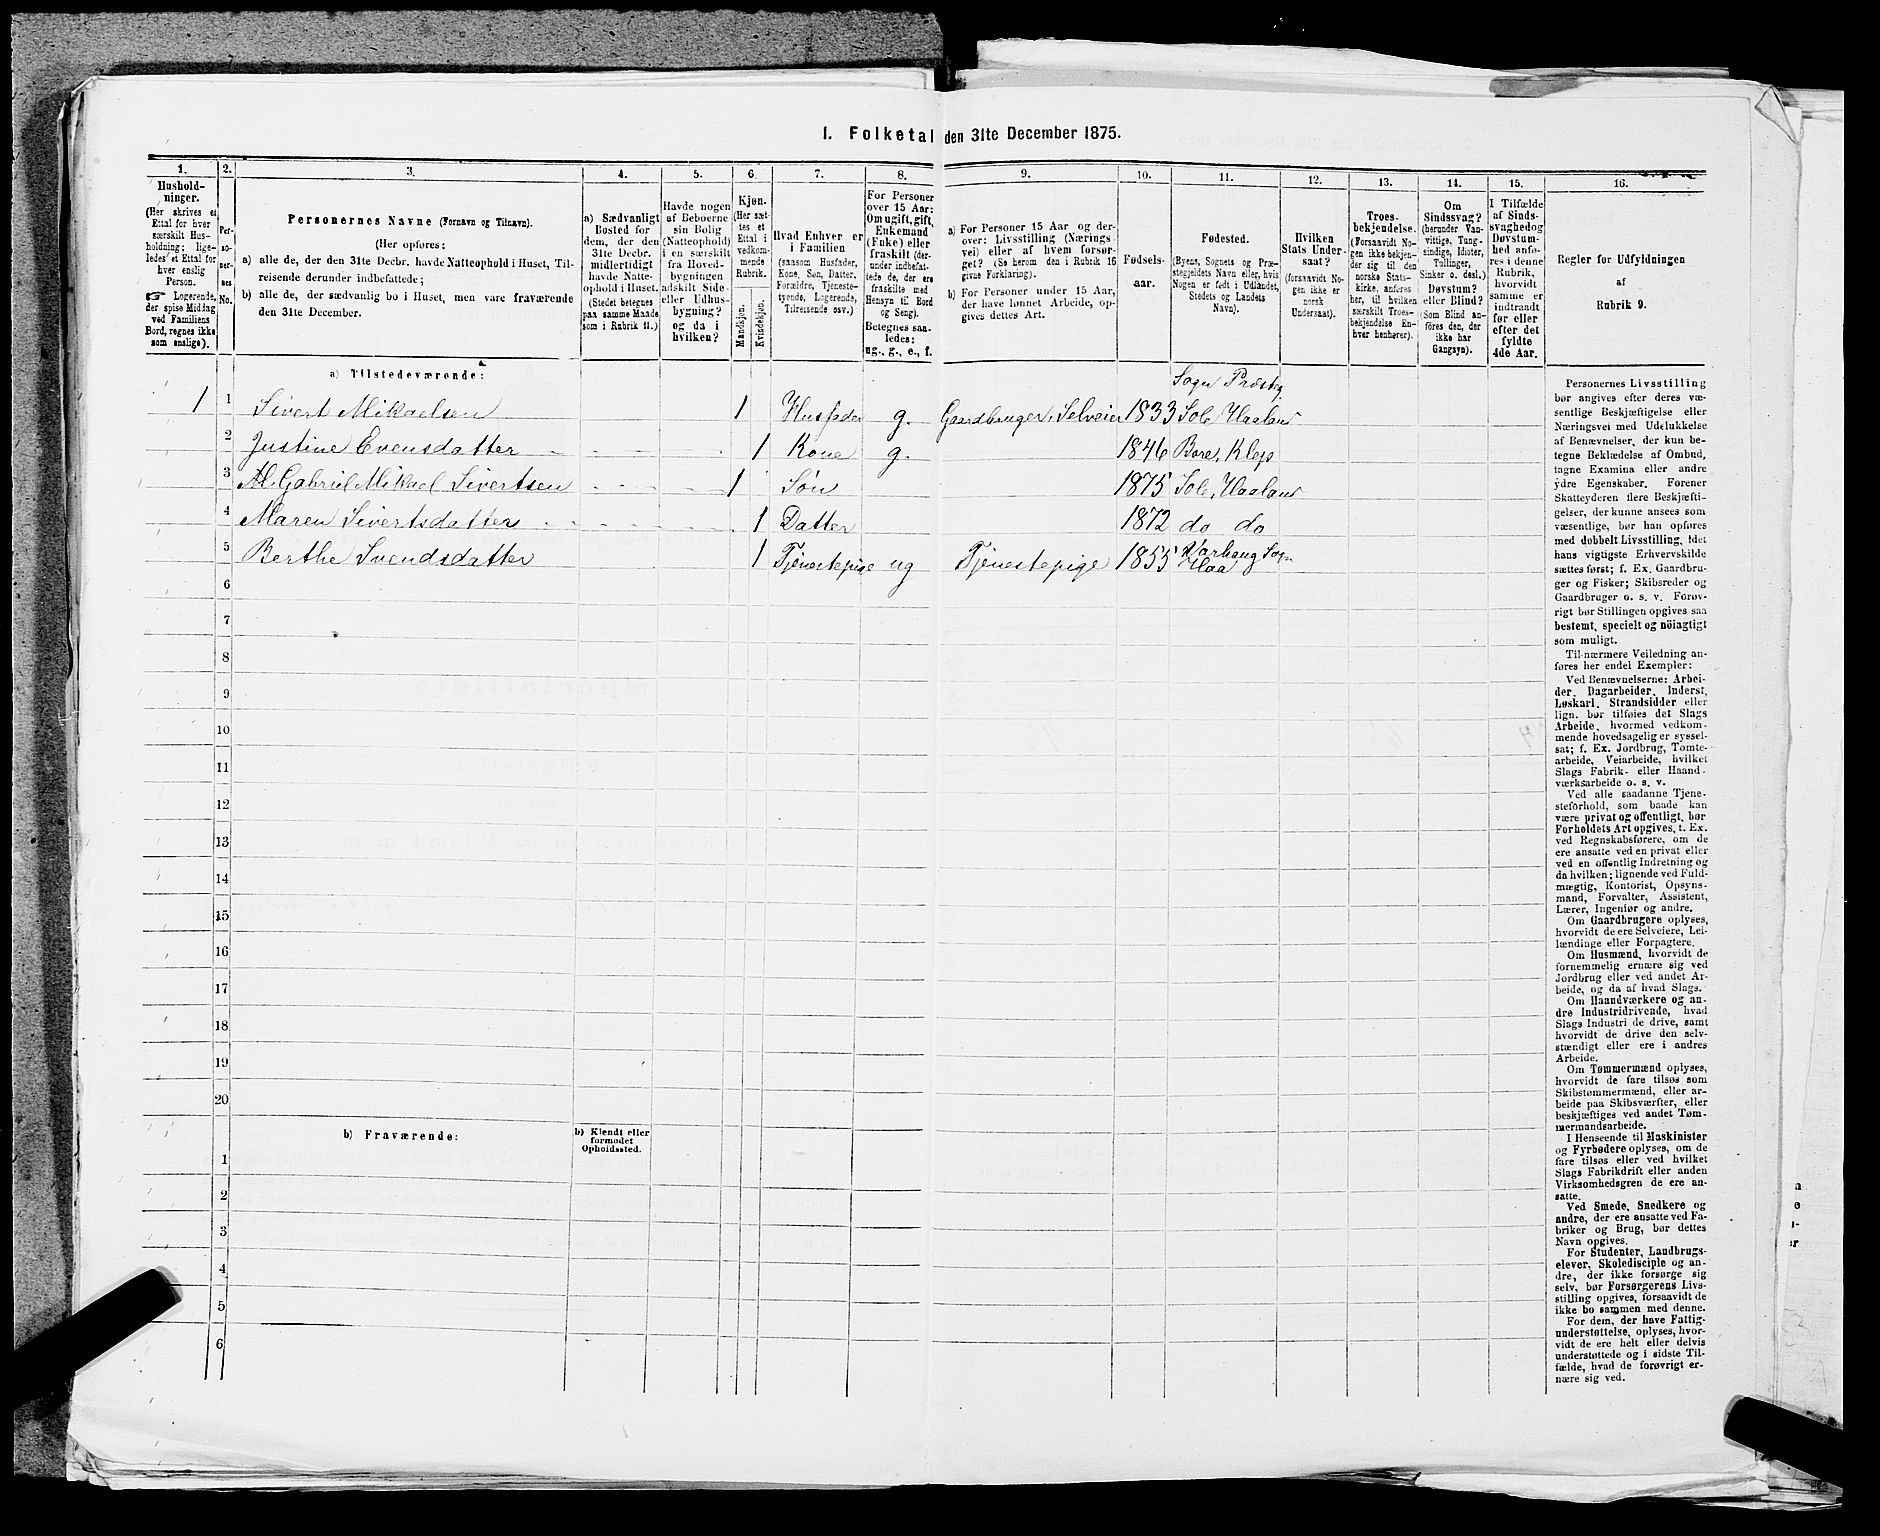 1. Folketal den 31te December 1875.
1.
Hushold-
ninger.
(Her skrives et
Ettal for hver
særskilt Hus-
holdning; lige-
ledes et Ettal for
hver enslig
Person.
☞ Logerende,
der spise Middag
ved Familiens
Bord, regnes ikke
som enslige).
2.
Per-
so-
ner-
nes
No.
3.
Personernes Navne (Fornavn og Tilnavn).
(Her opføres:
a) alle de, der den 31te Decbr. havde Natteophold i Huset, Til-
reisende derunder indbefattede;
b) alle de, der sædvanlig bo i Huset, men vare fraværende
den 31te December.
4.
a) Sædvanligt
Bosted for
dem, der den
31te Decbr.
midlertidigt
havde Natte-
ophold i Huset.
(Stedet betegnes
paa samme Maade
som i Rubrik 11.)
5.
Havde nogen
af Beboerne
sin Bolig
(Natteophold)
i en særskilt
fra Hoved-
bygningen
adskilt Side-
eller Udhus-
bygning?
og da i
hvilken?
6.
Kjøn.
(Her sæt-
tes et
Ettal i
vedkom-
mende
Rubrik.
Mandkjøn.
Kvindekjøn.
7.
Hvad Enhver er
i Familien
(saasom Husfader,
Kone, Søn, Datter,
Forældre, Tjeneste-
tyende, Logerende,
Tilreisende osv.)
8.
For Personer
over 15 Aar:
Om ugift, gift,
Enkemand
(Enke) eller
fraskilt (der-
under indbefat-
tede de, der ere
fraskilte med
Hensyn til Bord
og Seng).
Betegnes saa-
ledes:
ug., g., e., f.
9.
a) For Personer 15 Aar og der-
over: Livsstilling (Nærings-
vei) eller af hvem forsør-
get? (Se herom den i Rubrik 16
givne Forklaring).
b) For Personer under 15 Aar,
der have lønnet Arbeide, op-
gives dettes Art.
10.
Fødsels-
aar.
11.
Fødested.
(Byens, Sognets og Præ-
stegjeldets Navn eller, hvis
Nogen er født i Udlandet,
Stedets og Landets
Navn).
12.
Hvilken
Stats Under-
saat?
(forsaavidt No-
gen ikke er
norsk
Undersaat).
13.
Troes-
bekjendelse.
(Forsaavidt No-
gen ikke bekjen-
der sig til den
norske Stats-
kirke, anføres
her, til hvilken
særskilt Troes-
bekjendelse En-
hver henhører).
14.
Om
Sindssvag?
(herunder Van-
vittige, Tung-
sindige, Idioter,
Tullinger,
Sinker o. desl.)
Døvstum?
eller Blind?
(Som Blind an-
føres den, der
ikke har
Gangsyn).
15.
I Tilfælde
af Sinds-
svaghed og
Døvstum-
hed anfø-
res i denne
Rubrik,
hvorvidt
samme er
indtraadt
før eller
efter det
fyldte
4de Aar.
16.
Regler for Udfyldningen
af
Rubrik 9.
a) Tilstedeværende:
Sogn Præsteg.
1 1 Sivert Mikaelsen 1 Husfader g. Gaardbruger, Selveier 1833 Sole, Haaland
2 Justine Evensdatter 1 Kone g. 1846 Bore, Klep
3 Gabriel Mikael Sivertsen 1 Søn 1875 Sole, Haaland
4 Maren Sivertsdatter 1 Datter 1872 do do
5 Berthe Svendsdatter 1 Tjenestepige ug Tjenestepige 1855 Varhaug Sogn
Haa
6
7
8
9
10
11
12
13
14
15
16
17
18
19
20
b) Fraværende:
b) Kjendt eller
formodet
Opholdssted.
1
2
3
4
5
6
Personernes Livsstilling
bør angives efter deres væ-
sentlige Beskjæftigelse eller
Næringsvei med Udelukkelse
af Benævnelser, der kun be-
tegne Beklædelse af Ombud,
tagne Examina eller andre
ydre Egenskaber. Forener
Skatteyderen flere Beskjæfti-
gelser, der kunne ansees som
væsentlige, bør han opføres
med dobbelt Livsstilling, idet
hans vigtigste Erhvervskilde
sættes først; f. Ex. Gaardbru-
ger og Fisker; Skibsreder og
Gaardbruger o. s. v. Forøv-
rigt bør Stillingen opgives saa
bestemt, specielt og nöiagtigt
som muligt.
Til nærmere Veiledning an-
føres her endel Exempler:
Ved Benævnelserne: Arbei-
der, Dagarbeider, Inderst,
Løskarl, Strandsidder eller
lign. bør tilføies det Slags
Arbeide, hvormed vedkom-
mende hovedsagelig er syssel-
sat; f. Ex. Jordbrug, Tomte-
arbeide, Veiarbeide, hvilket
Slags Fabrik- eller Haand-
værksarbeide o. s. v.
Ved alle saadanne Tjene-
steforhold, som baade kan
være privat og offentligt, bør
Forholdets Art opgives, t. Ex.
ved Regnskabsførere, om de
ere ansatte ved en privat eller
ved en offentlig Indretning og
da hvilken; lignende ved Fuld-
mægtig, Kontorist, Opsyns-
mand, Forvalter, Assistent,
Lærer, Ingeniør og andre.
Om Gaardbrugere oplyses,
hvorvidt de ere Selveiere, Lei-
lændinge eller Forpagtere.
Om Husmænd, hvorvidt de
fornemmelig ernære sig ved
Jordbrug eller ved andet Ar-
beide, og da af hvad Slags.
Om Haandværkere og an-
dre Industridrivende, hvad
Slags Industri de drive, samt
hvorvidt de drive den selv-
stændigt eller ere i andres
Arbeide.
Om Tømmermænd oplyses,
hvorvidt de fare tilsøs som
Skibstømmermænd, eller ar-
beide paa Skibsværfter, eller
beskjæftiges ved andet Tøm-
mermandsarbeide.
I Henseende til Maskinister
og Fyrbødere oplyses, om de
fare tilsøs eller ved hvilket
Slags Fabrikdrift eller anden
Virksomhedsgren de ere an-
satte.
Ved Smede, Snedkere og
andre, der ere ansatte ved Fa-
briker og Brug, bør dettes
Navn opgives.
For Studenter, Landbrugs-
elever, Skoledisciple og an-
dre, der ikke forsørge sig
selv, bør Forsørgerens Livs-
stilling opgives, forsaavidt de
ikke bo sammen med denne.
For dem, der have Fattig-
understøttelse, oplyses, hvor-
vidt de ere helt eller delvis
understøttede og i sidste Til-
fælde, hvad de forøvrigt er-
nære sig ved.